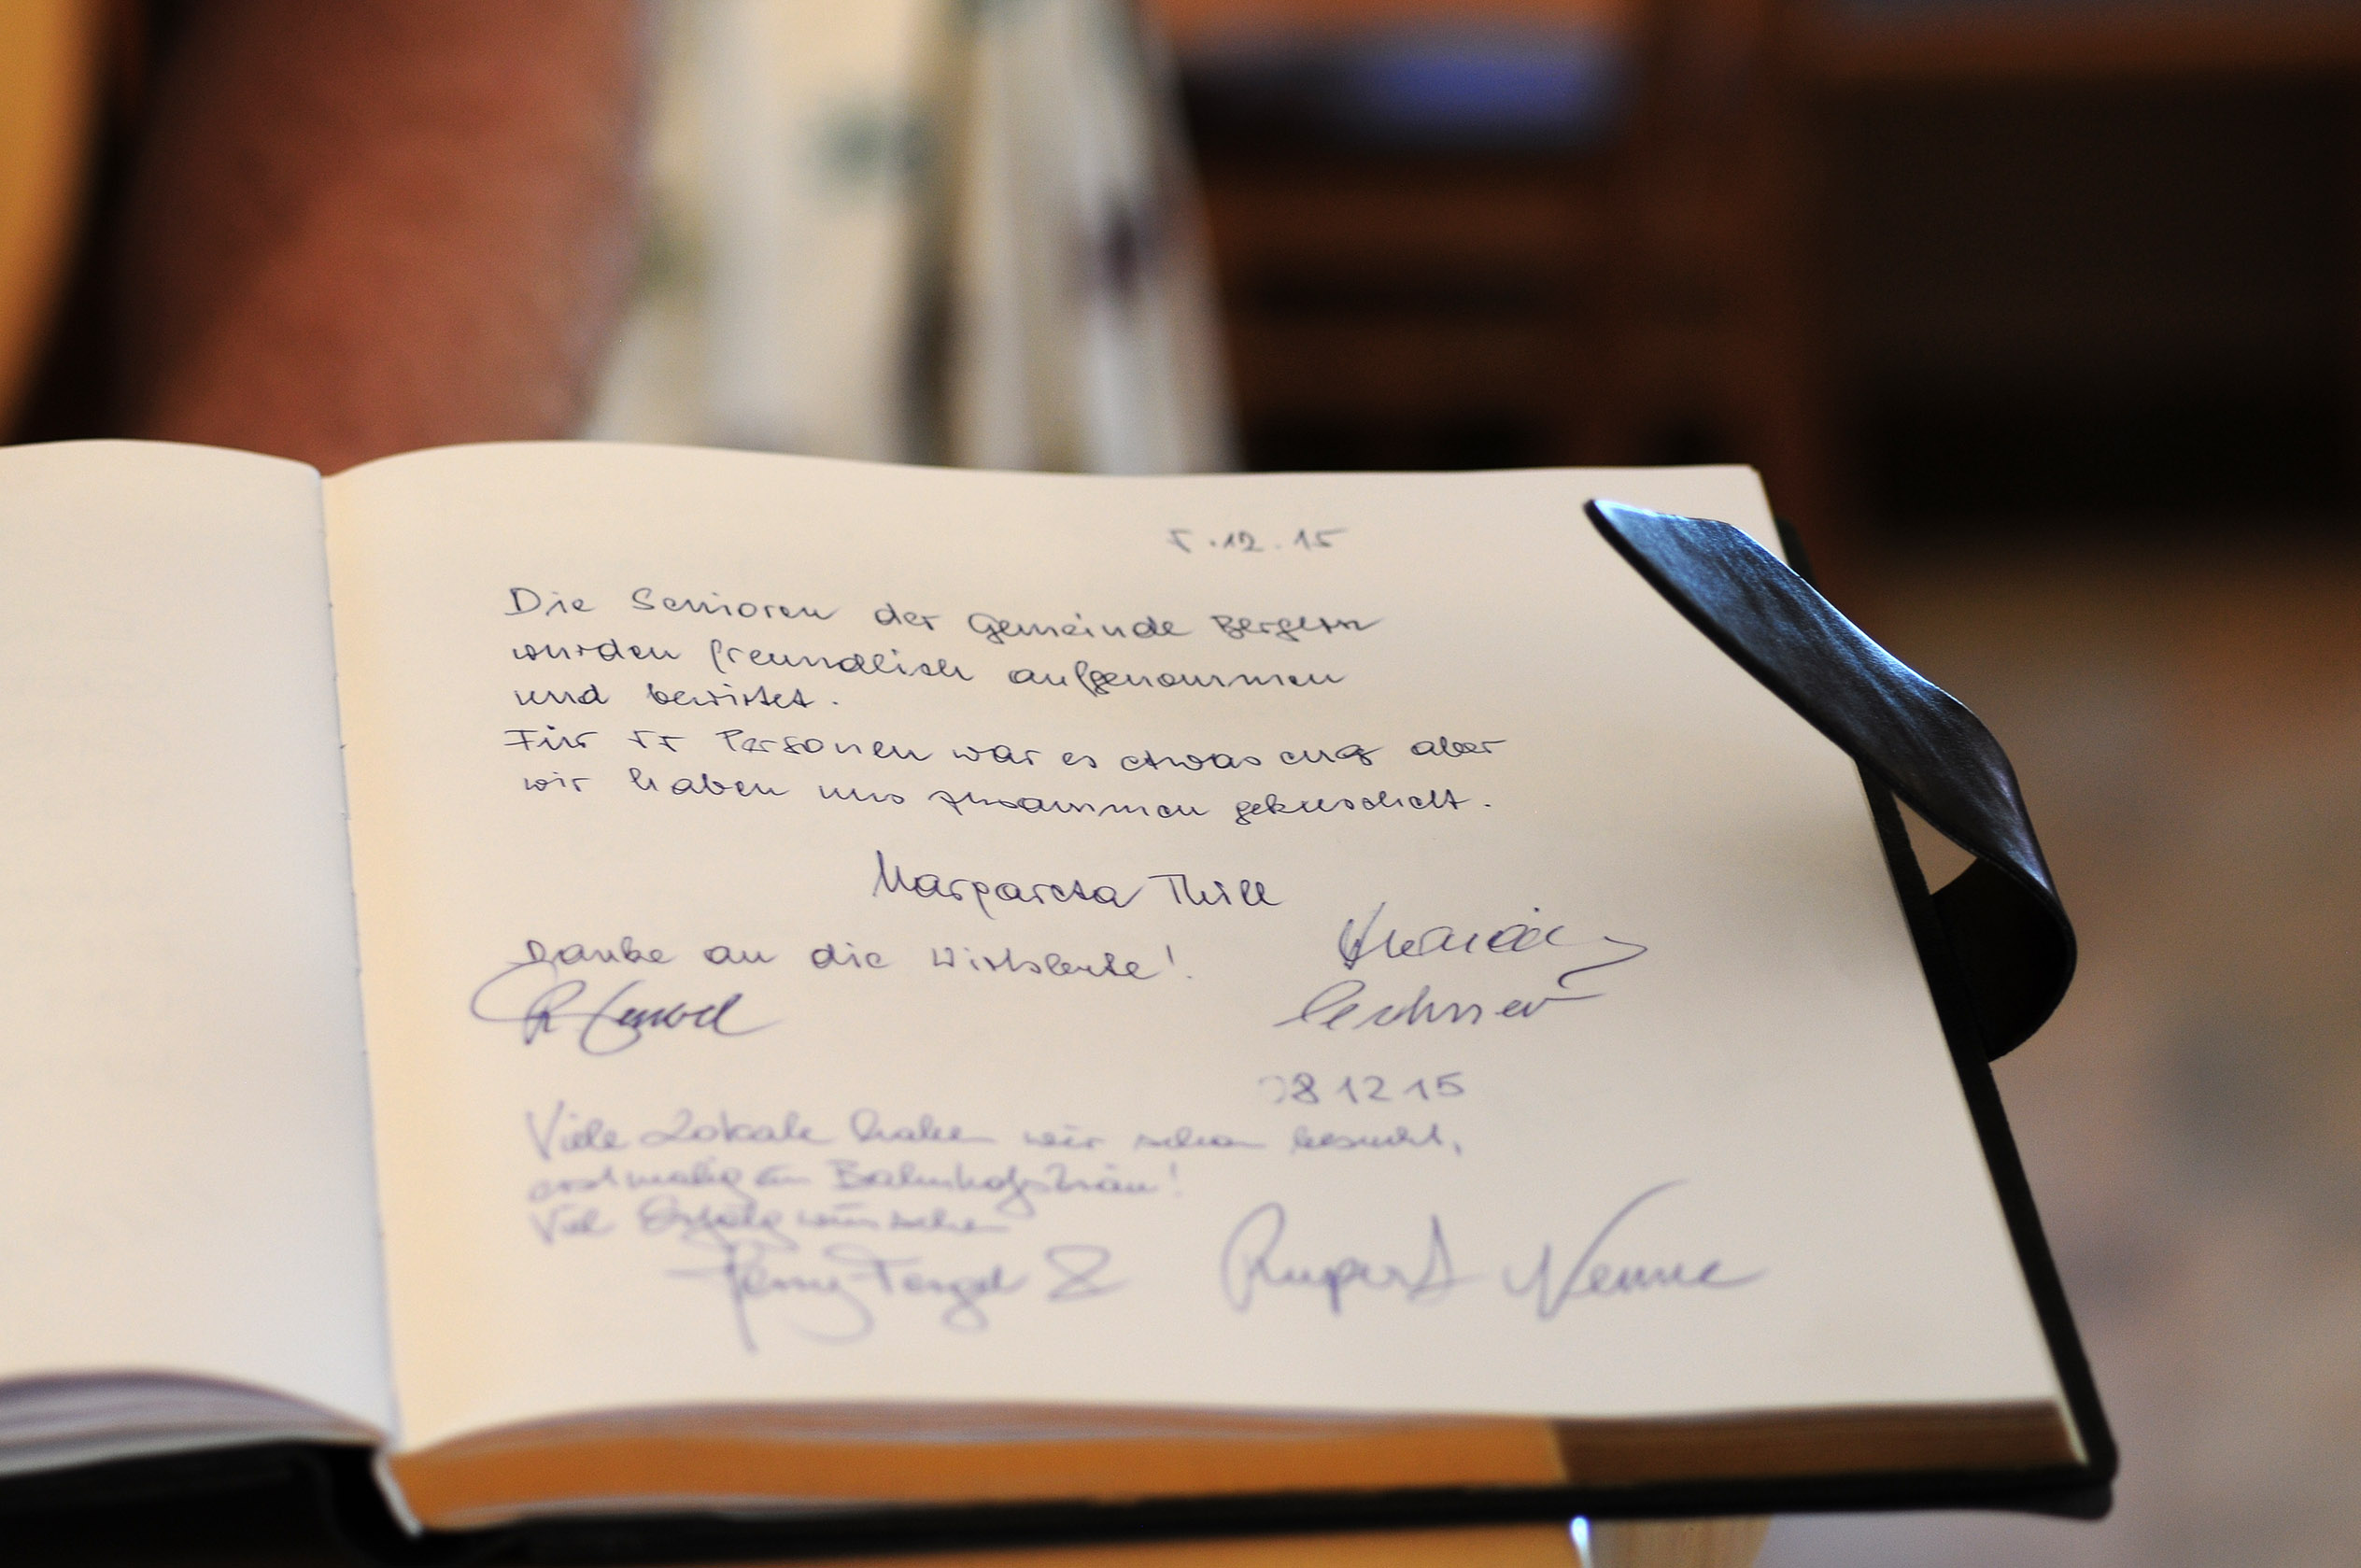 5.12.15
Die Senioren der Gemeinde Bergern
wurden freundlich aufgenommen
und bewirtet.
Für 55 Personen war es etwas eng aber
wir haben uns zusammen gekuschelt.
Margareta Thill
Danke an die Wirtsleute!
Lechner
08 12 15
Viele Lokale haben wir schon besucht,
erstmalig ein Bahnhofsbräu!
Viel Erfolg wünschen
&
Rupert